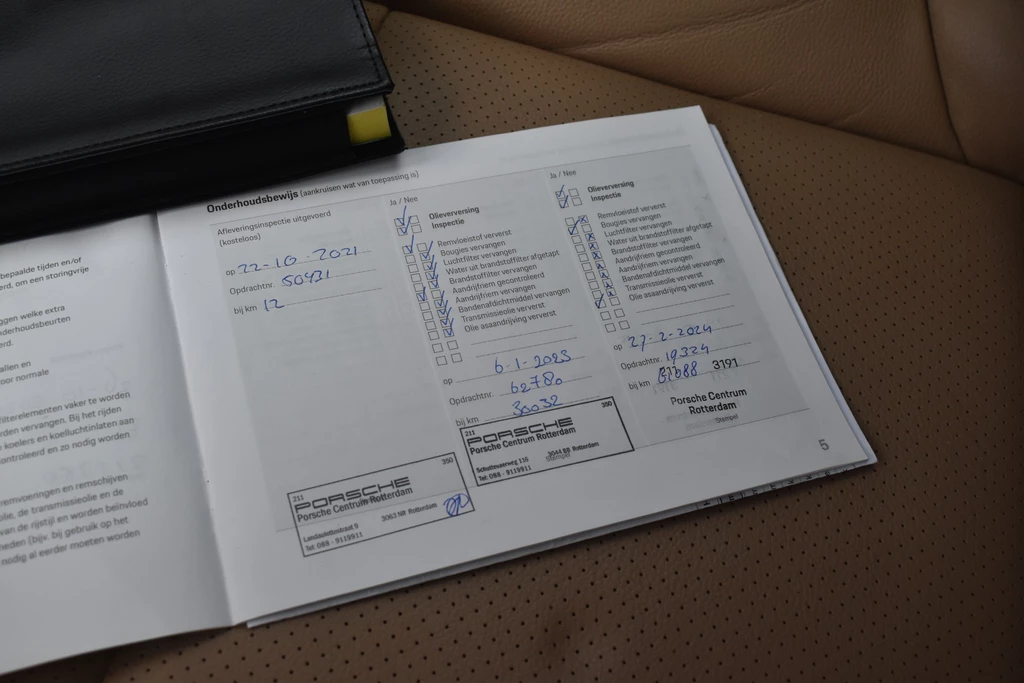 bepaalde tijden en/of
erd, om een storingvrije
ggen welke extra
nderhoudsbeurten
erd.
allen en
oor normale
filterelementen vaker te worden
rden vervangen. Bij het rijden
koelers en koelluchtinlaten aan
ontroleerd en zo nodig worden
remvoeringen en remschijven
olie, de transmissieolie en de
van de rijstijl en worden beïnvloed
heden (bijv. bij gebruik op het
nodig al eerder moeten worden
Onderhoudsbewijs (aankruisen wat van toepassing is)
Afleveringsinspectie uitgevoerd
(kosteloos)
op 22-10-2021
Opdrachtnr. 50431
bij km 12
211 350
PORSCHE
Porsche Centrum Rotterdam
3063 NR Rotterdam
Tel: 088 - 9119911
Ja / Nee
Olieverversing
Inspectie
Remvloeistof ververst
Bougies vervangen
Luchtfilter vervangen
Water uit brandstoffilter afgetapt
Brandstoffilter vervangen
Aandrijfriem gecontroleerd
Aandrijfriem vervangen
Bandenafdichtmiddel vervangen
Transmissieolie ververst
Olie asaandrijving ververst
op 6-1-2023
Opdrachtnr. 62780
bij km 30032
211 350
PORSCHE
Porsche Centrum Rotterdam
Schuttevaerweg 116 3044 BB Rotterdam
Stempel
Tel: 088 - 9119911
Ja / Nee
Olieverversing
Inspectie
Remvloeistof ververst
Bougies vervangen
Luchtfilter vervangen
Water uit brandstoffilter afgetapt
Brandstoffilter vervangen
Aandrijfriem gecontroleerd
Aandrijfriem vervangen
Bandenafdichtmiddel vervangen
Transmissieolie ververst
Olie asaandrijving ververst
op 27-2-2024
Opdrachtnr. 19324
211 3191
bij km 61088
Porsche Centrum
Rotterdam
Stempel
5